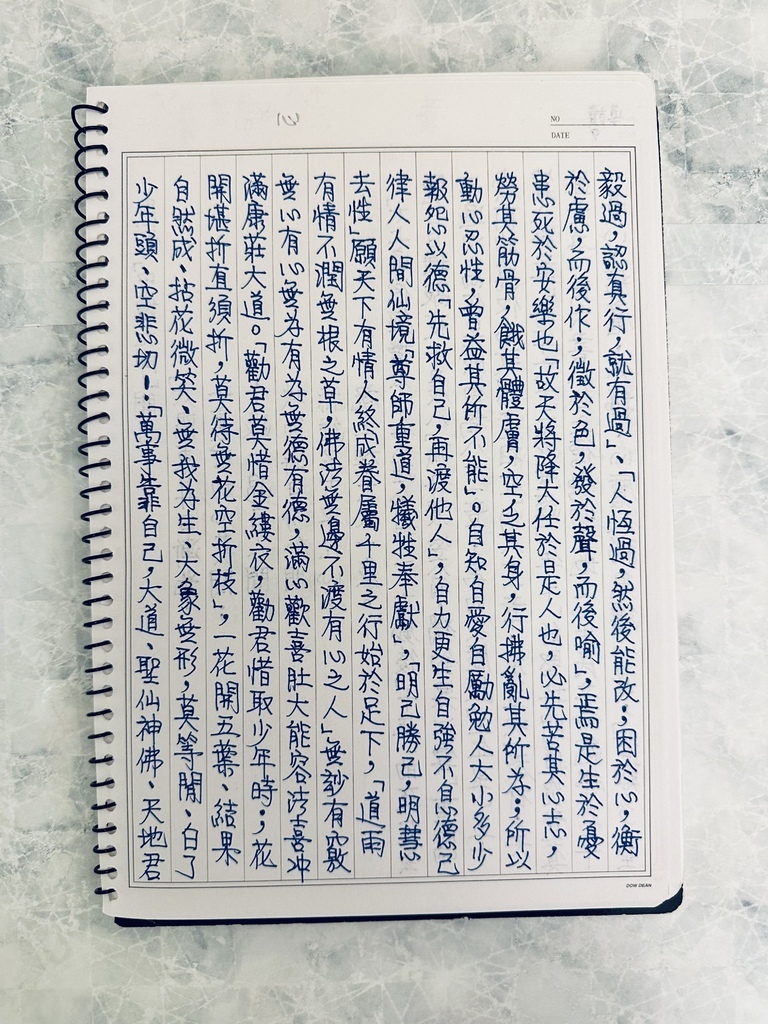 NO
DATE
毅過，認真行，就有過」、「人恆過，然後能改；困於心，衡
於慮，而後作；徵於色，發於聲，而後喻」，焉是生於憂
患死於安樂也「故天將降大任於是人也，必先苦其心志，
勞其筋骨，餓其體膚，空乏其身，行拂亂其所為；所以
動心忍性，曾益其所不能」。自知自愛自勵勉人大小多少
報怨以德「先救自己，再渡他人」，自力更生自強不息德己
律人人間仙境「尊師重道，犧牲奉獻」，「明己勝己，明慧
去性」願天下有情人終成眷屬千里之行始於足下，「道雨
有情不潤無根之草，佛法無邊不渡有心之人」無妙有竅
無心有心無為有為無德有德，滿心歡喜肚大能容法喜冲
滿康莊大道。「勸君莫惜金縷衣，勸君惜取少年時；花
開堪折直須折，莫待無花空折枝」，一花開五葉、結果
自然成、拈花微笑、無我為生、大象無形，莫等閒、白了
少年頭、空悲切！「萬事靠自己，大道、聖仙神佛、天地君
DOW DEAN